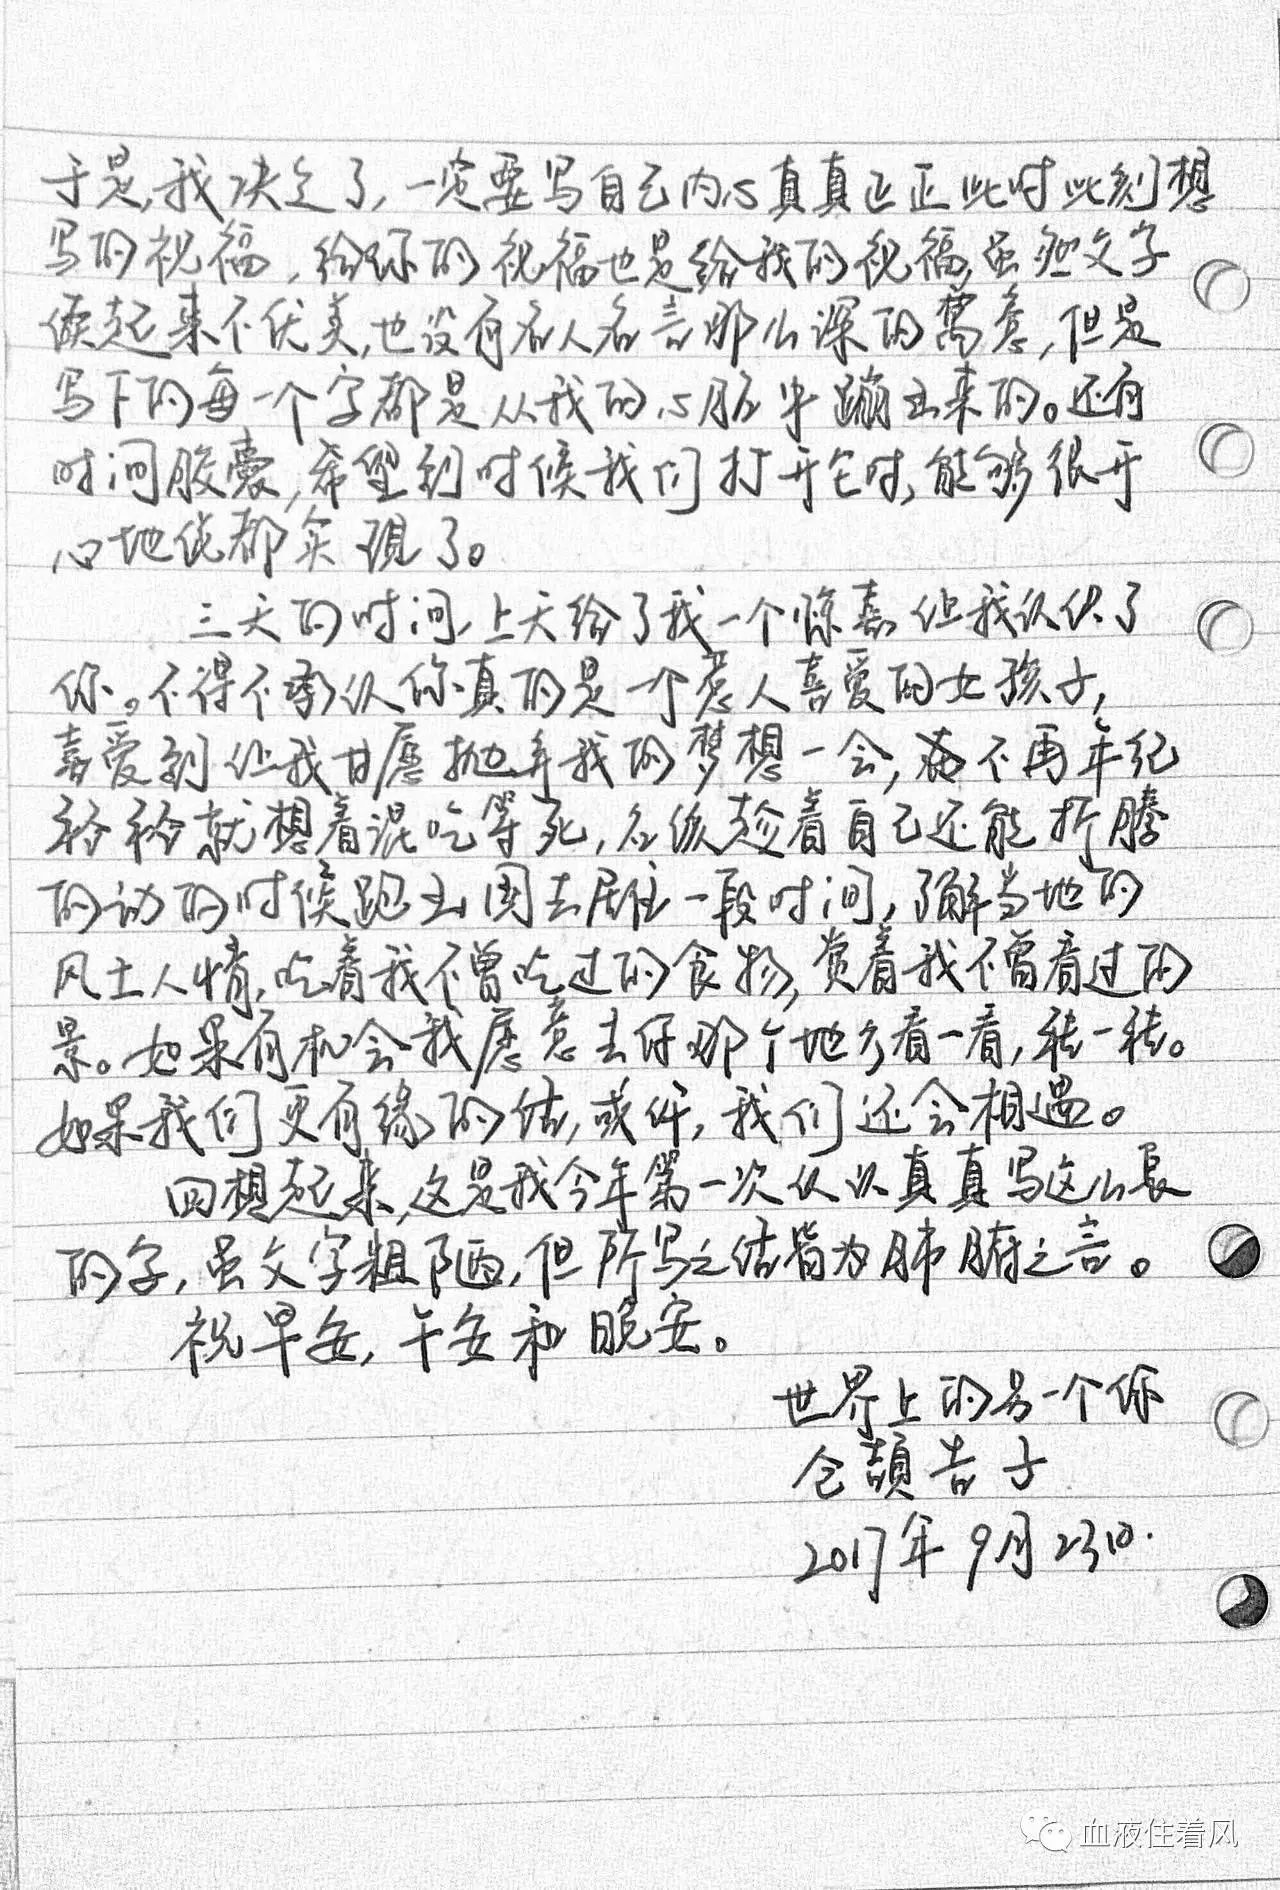 于是,我决定了,一定要写自己内心真真正正此时此刻想
写的祝福,给你的祝福也是给我的祝福,虽然文字
读起来不优美,也没有名人名言那么深的寓意,但是
写下的每一个字都是从我的心脏中蹦出来的。还有
时间胶囊,希望到时候我们打开它时,能够很开
心地说都实现了。
三天的时间,上天给了我一个惊喜让我认识了
你。不得不承认你真的是一个惹人喜爱的女孩子,
喜爱到让我甘愿抛弃我的梦想一会,不再年纪
轻轻就想着混吃等死,应该趁着自己还能折腾
的动的时候跑出国去居住一段时间,了解当地的
风土人情,吃着我不曾吃过的食物,赏着我不曾看过的
景。如果有机会我愿意去你那个地方看一看,转一转。
如果我们更有缘的话,或许,我们还会相遇。
回想起来,这是我今年第一次认认真真写这么长
的字,虽文字粗陋,但所写之话皆为肺腑之言。
祝早安,午安和晚安。
世界上的另一个你
仓颉吉子
2017年9月23日.
血液住着风